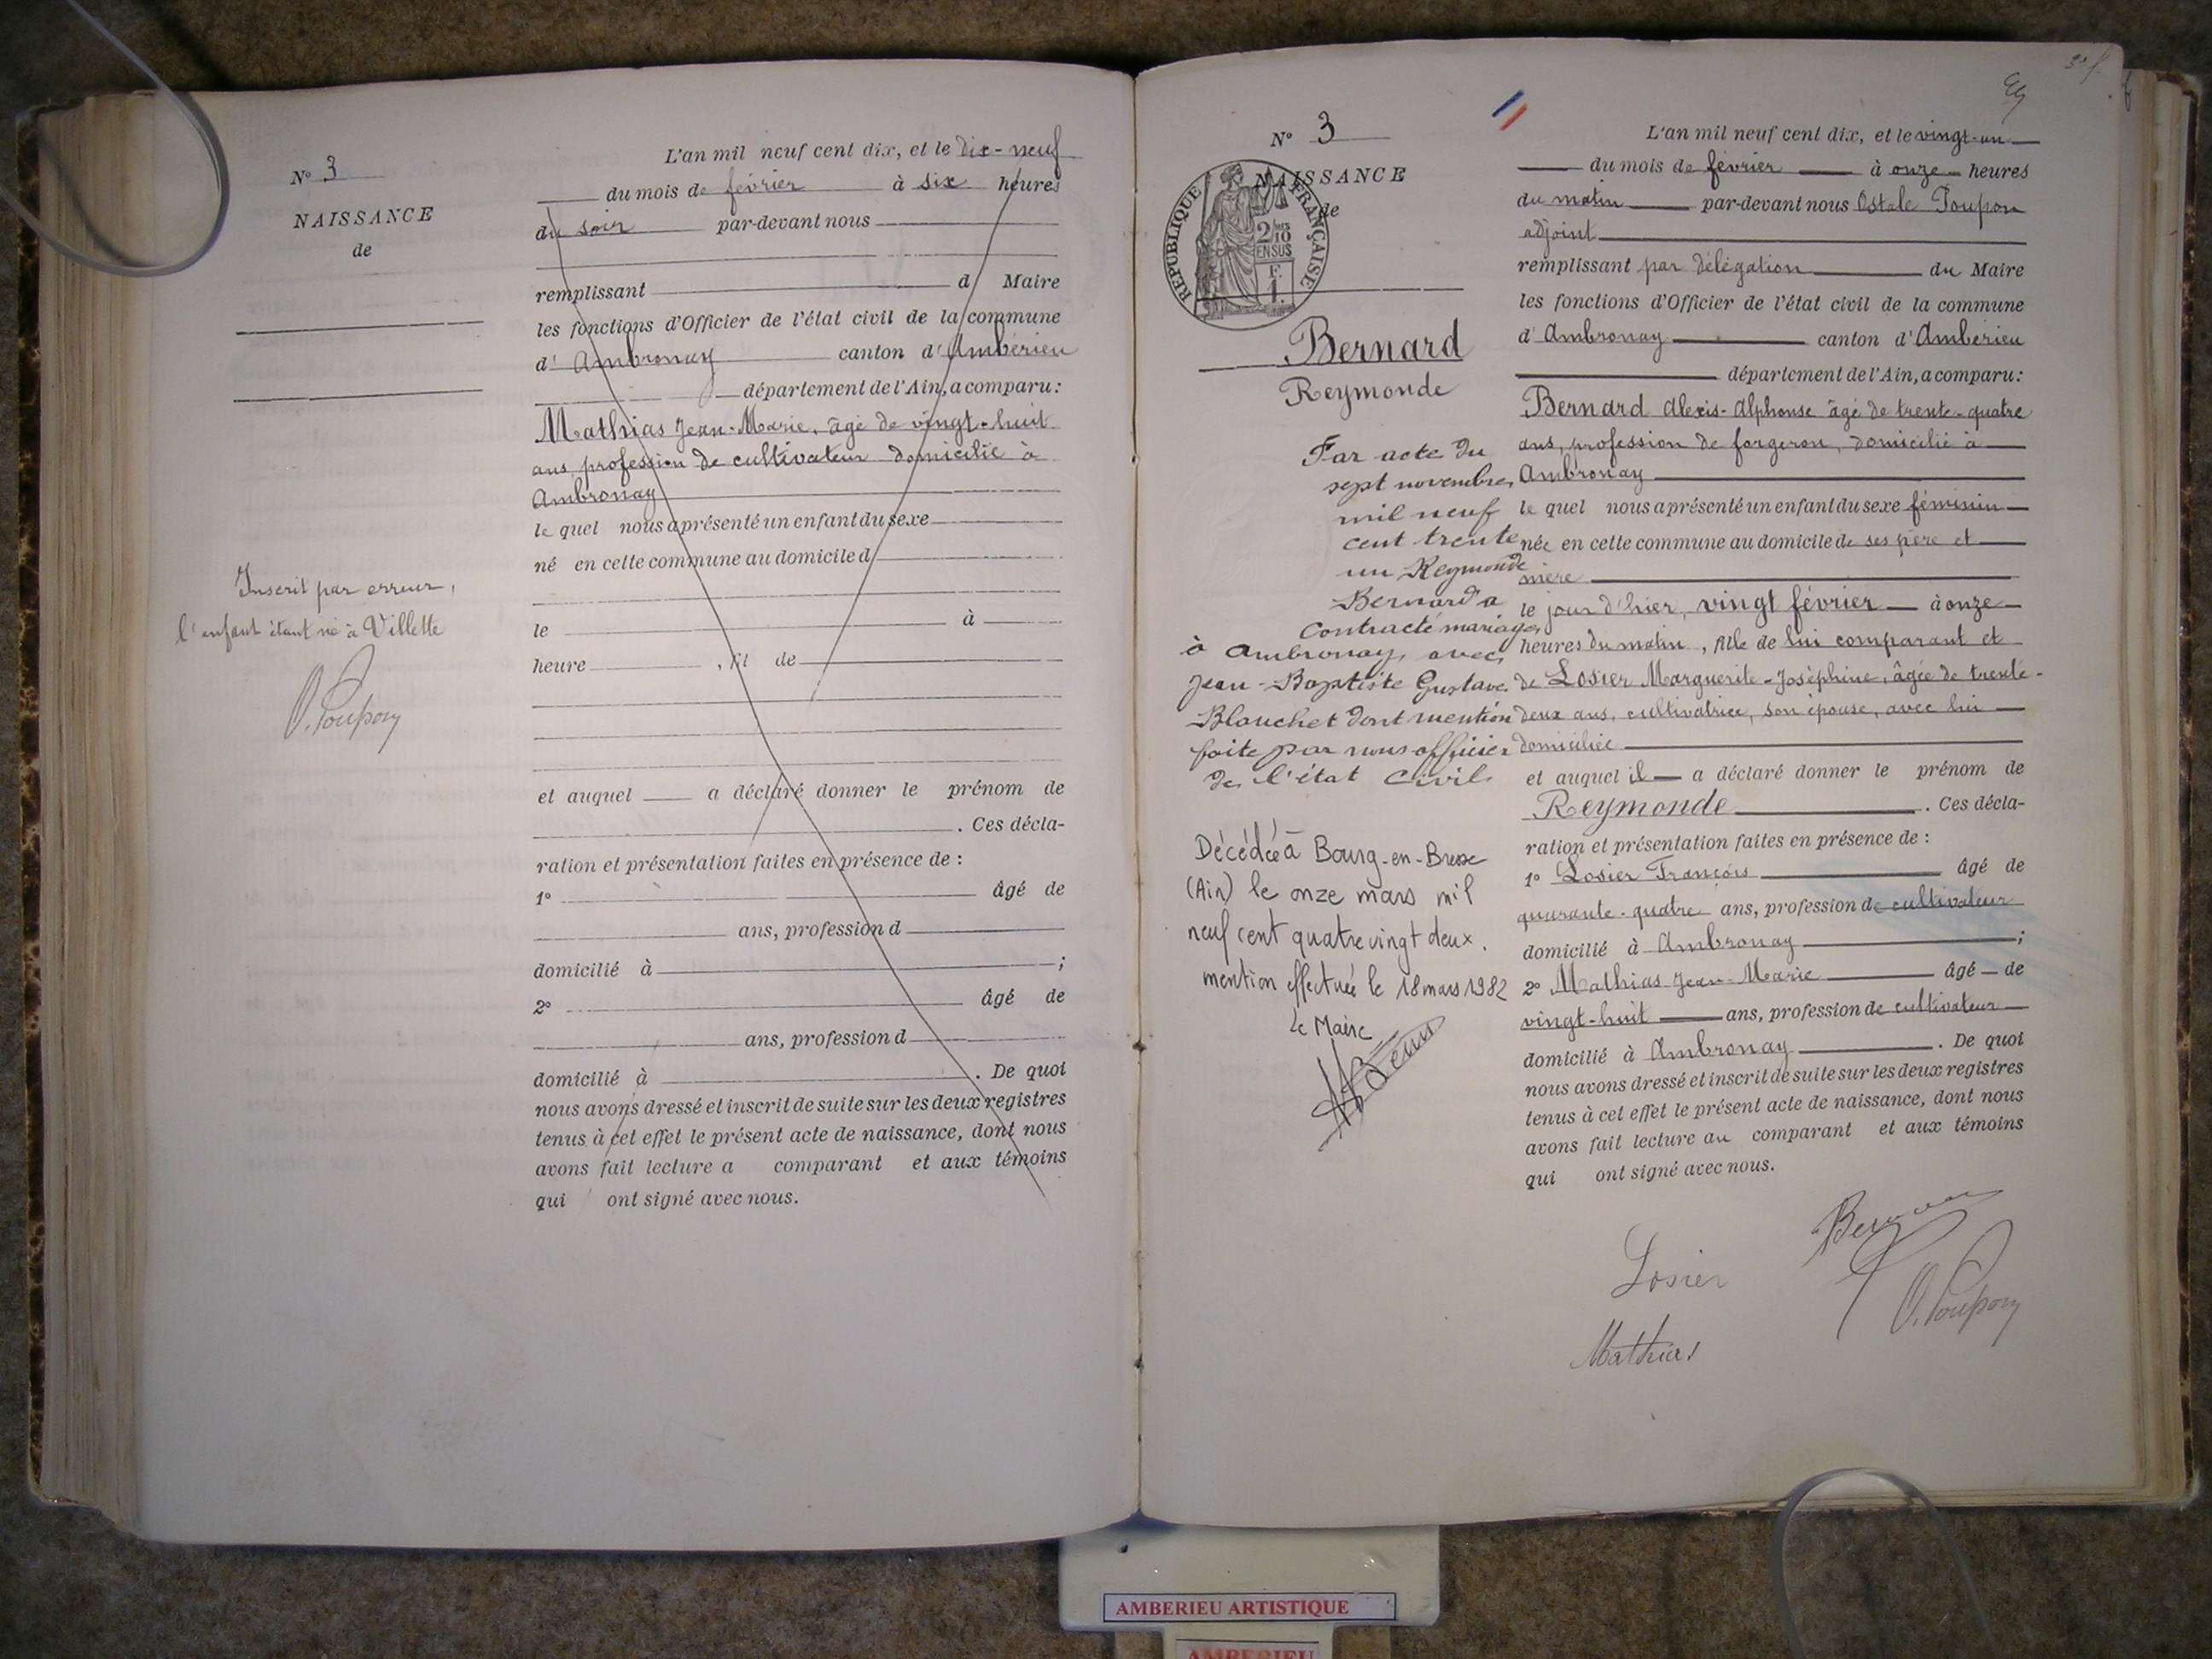 N° 3
NAISSANCE
de
Inscrit par erreur,
l'enfant étant né à Villette
O. Poupon
L'an mil neuf cent dix, et le dix-neuf
du mois de février à six heures
du soir par-devant nous
remplissant d Maire
les fonctions d'Officier de l'état civil de la commune
d' Ambronay canton d'Ambérieu
département de l'Ain, a comparu:
Mathias Jean-Marie, âgé de vingt-huit
ans, profession de cultivateur domicilié à
Ambronay
le quel nous a présenté un enfant du sexe
né en cette commune au domicile d
le à
heure , fil de
et auquel a déclaré donner le prénom de
. Ces décla-
ration et présentation faites en présence de :
1° âgé de
ans, profession d
domicilié à ;
2° âgé de
ans, profession d
domicilié à . De quoi
nous avons dressé et inscrit de suite sur les deux registres
tenus à cet effet le présent acte de naissance, dont nous
avons fait lecture a comparant et aux témoins
qui ont signé avec nous.
N° 3
NAISSANCE
de
RÉPUBLIQUE FRANÇAISE
2/10 EN SUS
F.
1.
Bernard
Reymonde
Par acte du
sept novembre
mil neuf
cent trente
un Reymonde
Bernard a
Contracté mariage
à Ambronay avec
Jean-Baptiste Gustave
Blanchet dont mention
faite par nous officier
de l'état Civil
Décédée à Bourg-en-Bresse
(Ain) le onze mars mil
neuf cent quatre vingt deux.
mention effectuée le 18 mars 1982
Le Maire
L'an mil neuf cent dix, et le vingt-un
du mois de février à onze heures
du matin par-devant nous Ostale Poupon
adjoint
remplissant par délégation du Maire
les fonctions d'Officier de l'état civil de la commune
d'Ambronay canton d'Ambérieu
département de l'Ain, a comparu:
Bernard Alexis-Alphonse âgé de trente-quatre
ans, profession de forgeron, domicilié à
Ambronay
le quel nous a présenté un enfant du sexe féminin
née en cette commune au domicile de ses père et
mère
le jour d'hier, vingt février à onze
heures du matin, fille de lui comparant et
de Losier Marguerite-Joséphine, âgée de trente-
deux ans, cultivatrice, son épouse, avec lui
domiciliée
et auquel il a déclaré donner le prénom de
Reymonde . Ces décla-
ration et présentation faites en présence de :
1° Losier François âgé de
quarante-quatre ans, profession de cultivateur
domicilié à Ambronay ;
2° Mathias Jean-Marie âgé de
vingt-huit ans, profession de cultivateur
domicilié à Ambronay . De quoi
nous avons dressé et inscrit de suite sur les deux registres
tenus à cet effet le présent acte de naissance, dont nous
avons fait lecture au comparant et aux témoins
qui ont signé avec nous.
Bernard
Losier
O. Poupon
Mathias
AMBERIEU ARTISTIQUE
AMBERIEU